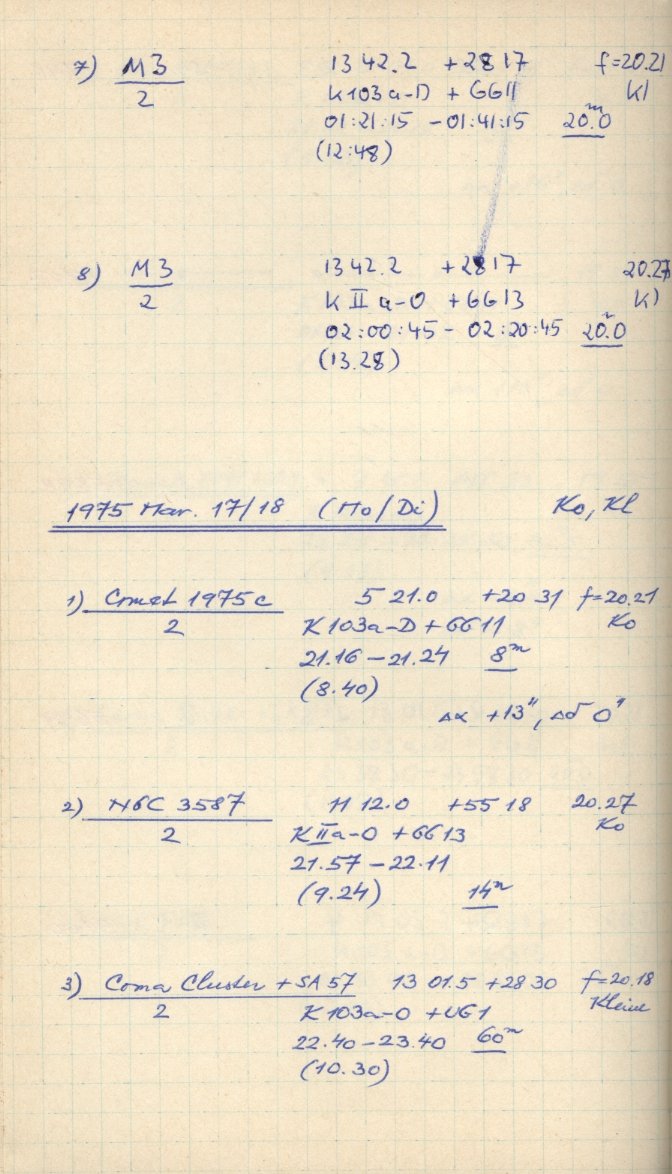 7) M3 1342.2 +2817 f=20.21
2 K103a-D + GG11 Kl
01:21:15 - 01:41:15 20.0ᵐ
(12:48)
8) M3 1342.2 +2817 20.27
2 K II a-O + GG13 Kl
02:00:45 - 02:20:45 20.0ᵐ
(13.28)
1975 Mar. 17/18 (Mo/Di) Ko, Kl
1) Comet 1975c 5 21.0 +20 31 f=20.21
2 K103a-D + GG11 Ko
21.16 - 21.24 8ᵐ
(8.40)
Δα +13", Δδ 0"
2) NGC 3587 11 12.0 +55 18 20.27
2 K IIa-O + GG13 Ko
21.57 - 22.11
(9.24) 14ᵐ
3) Coma Cluster + SA 57 13 01.5 +28 30 f=20.18
2 K103a-O + UG1 Kleine
22.40 - 23.40 60ᵐ
(10.30)